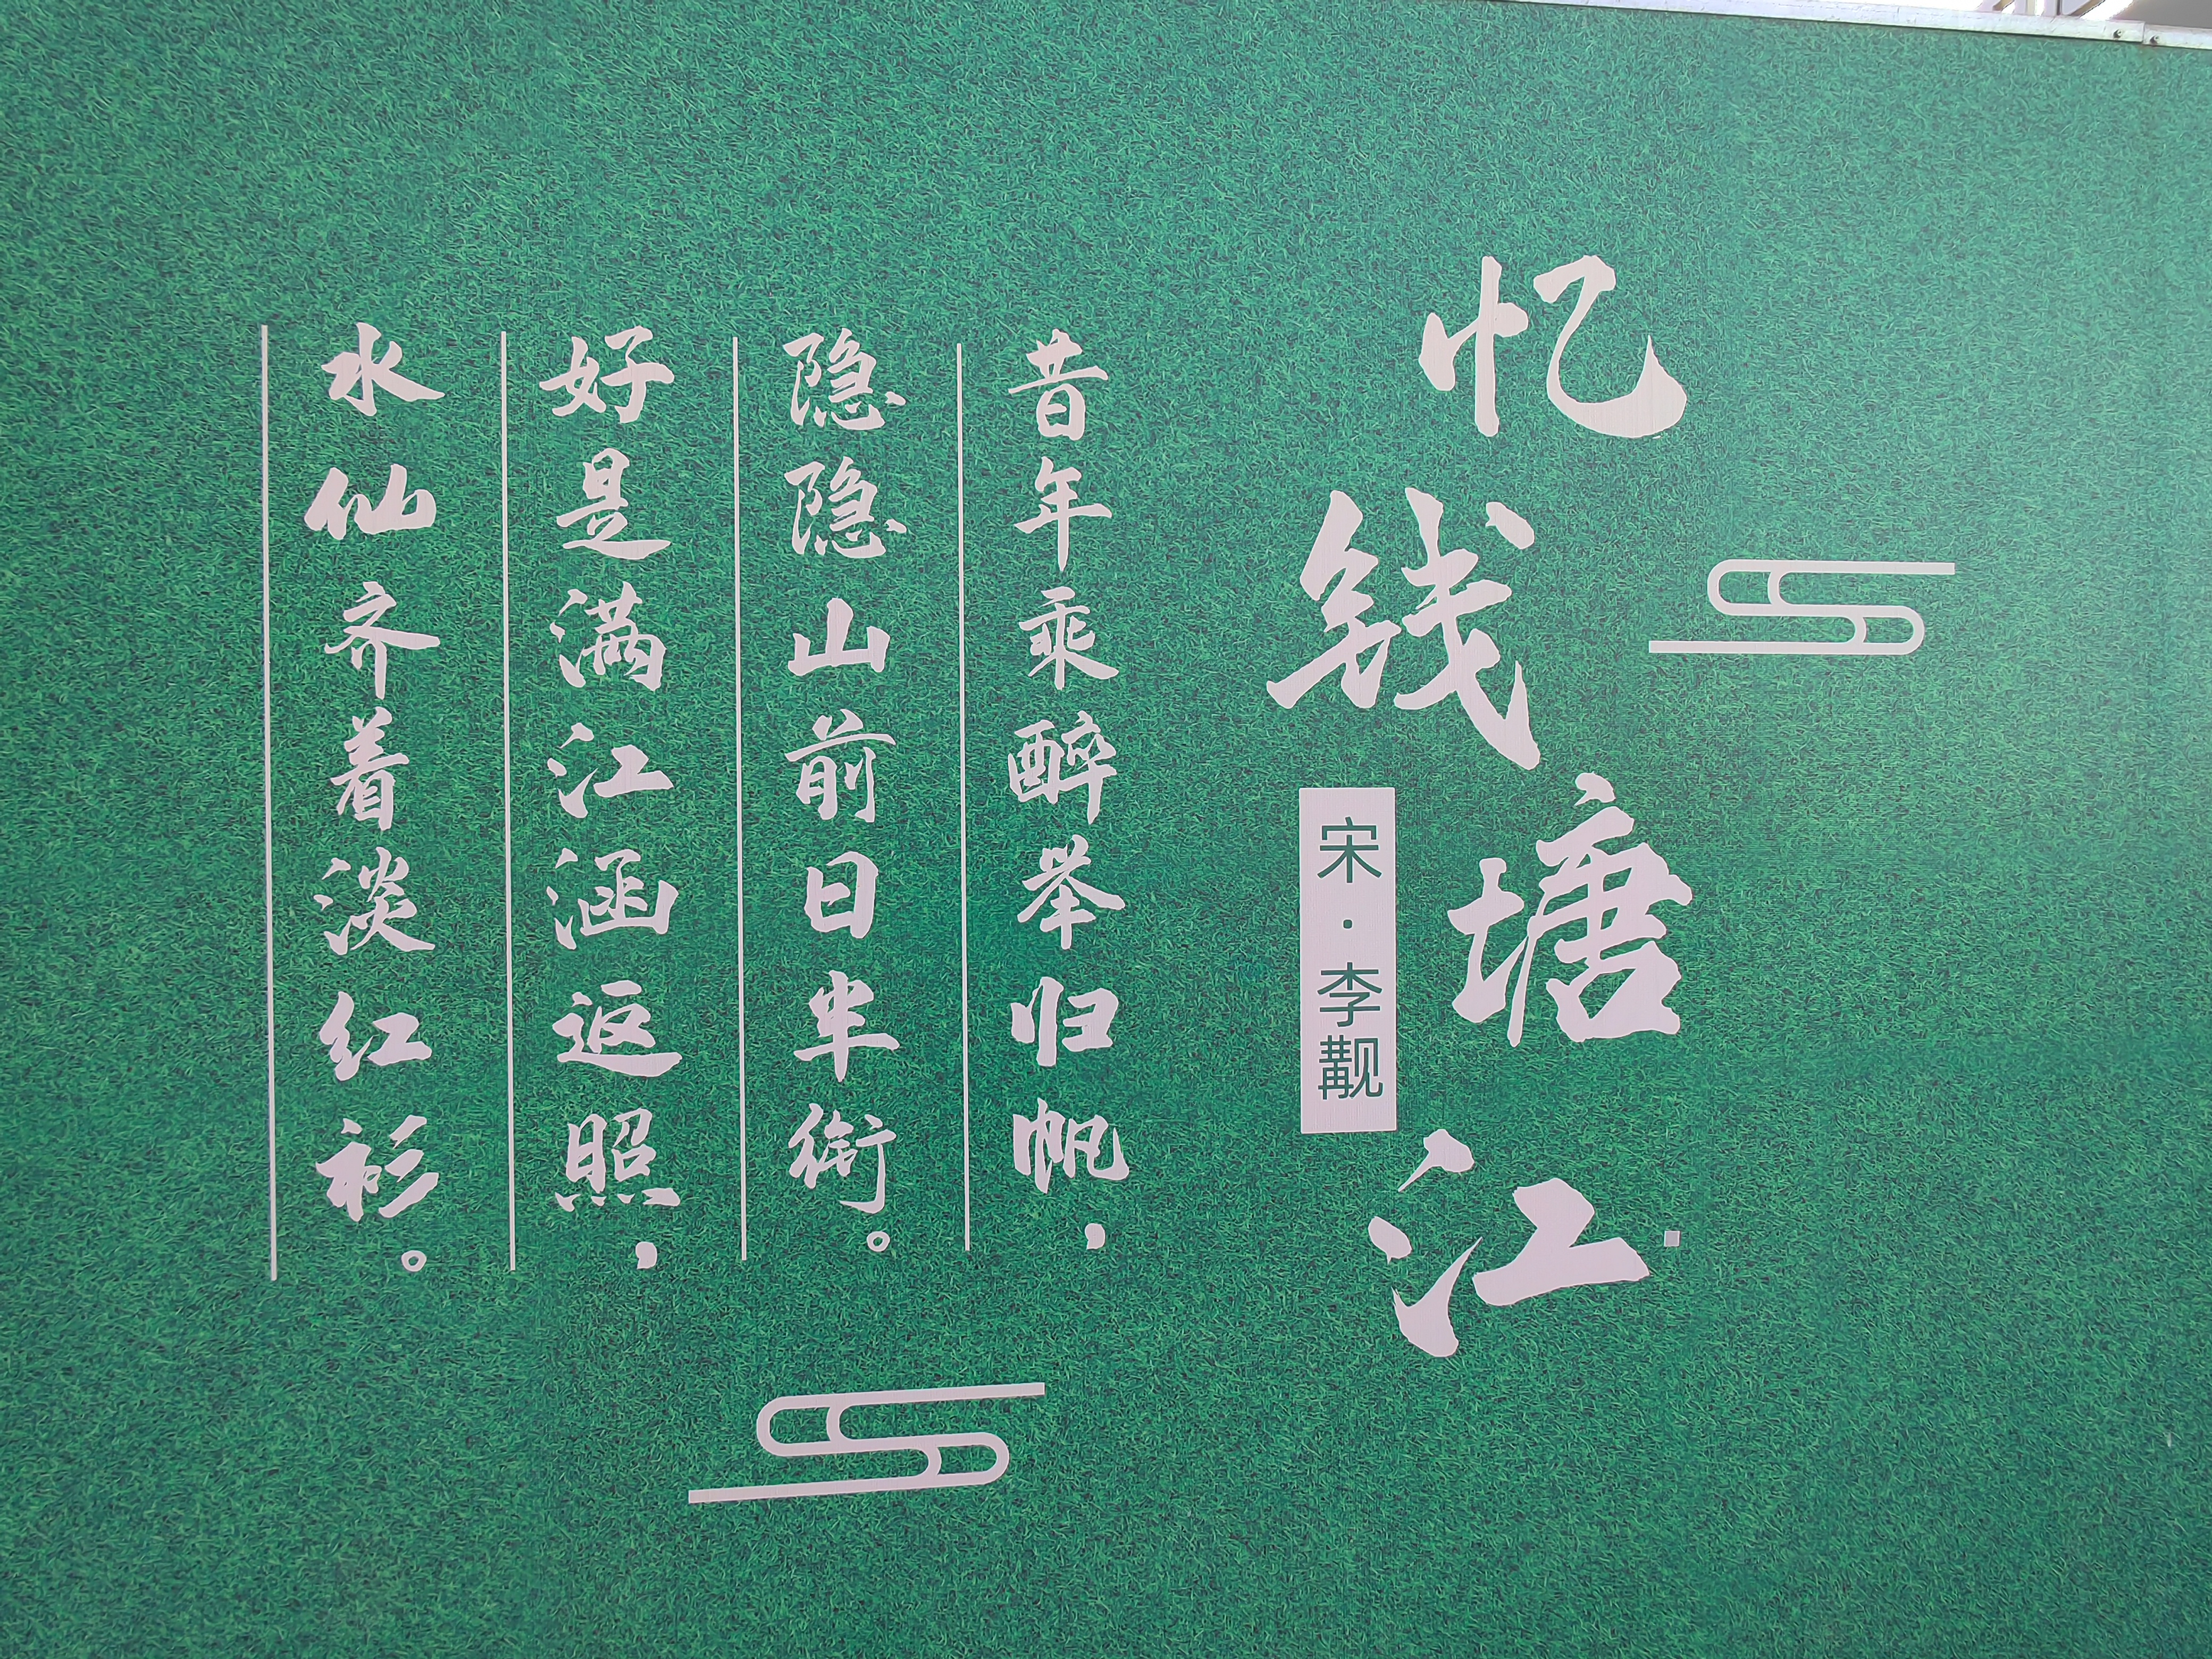 忆钱塘江
宋·李觏
昔年乘醉举归帆，
隐隐山前日半衔。
好是满江涵返照，
水仙齐着淡红衫。